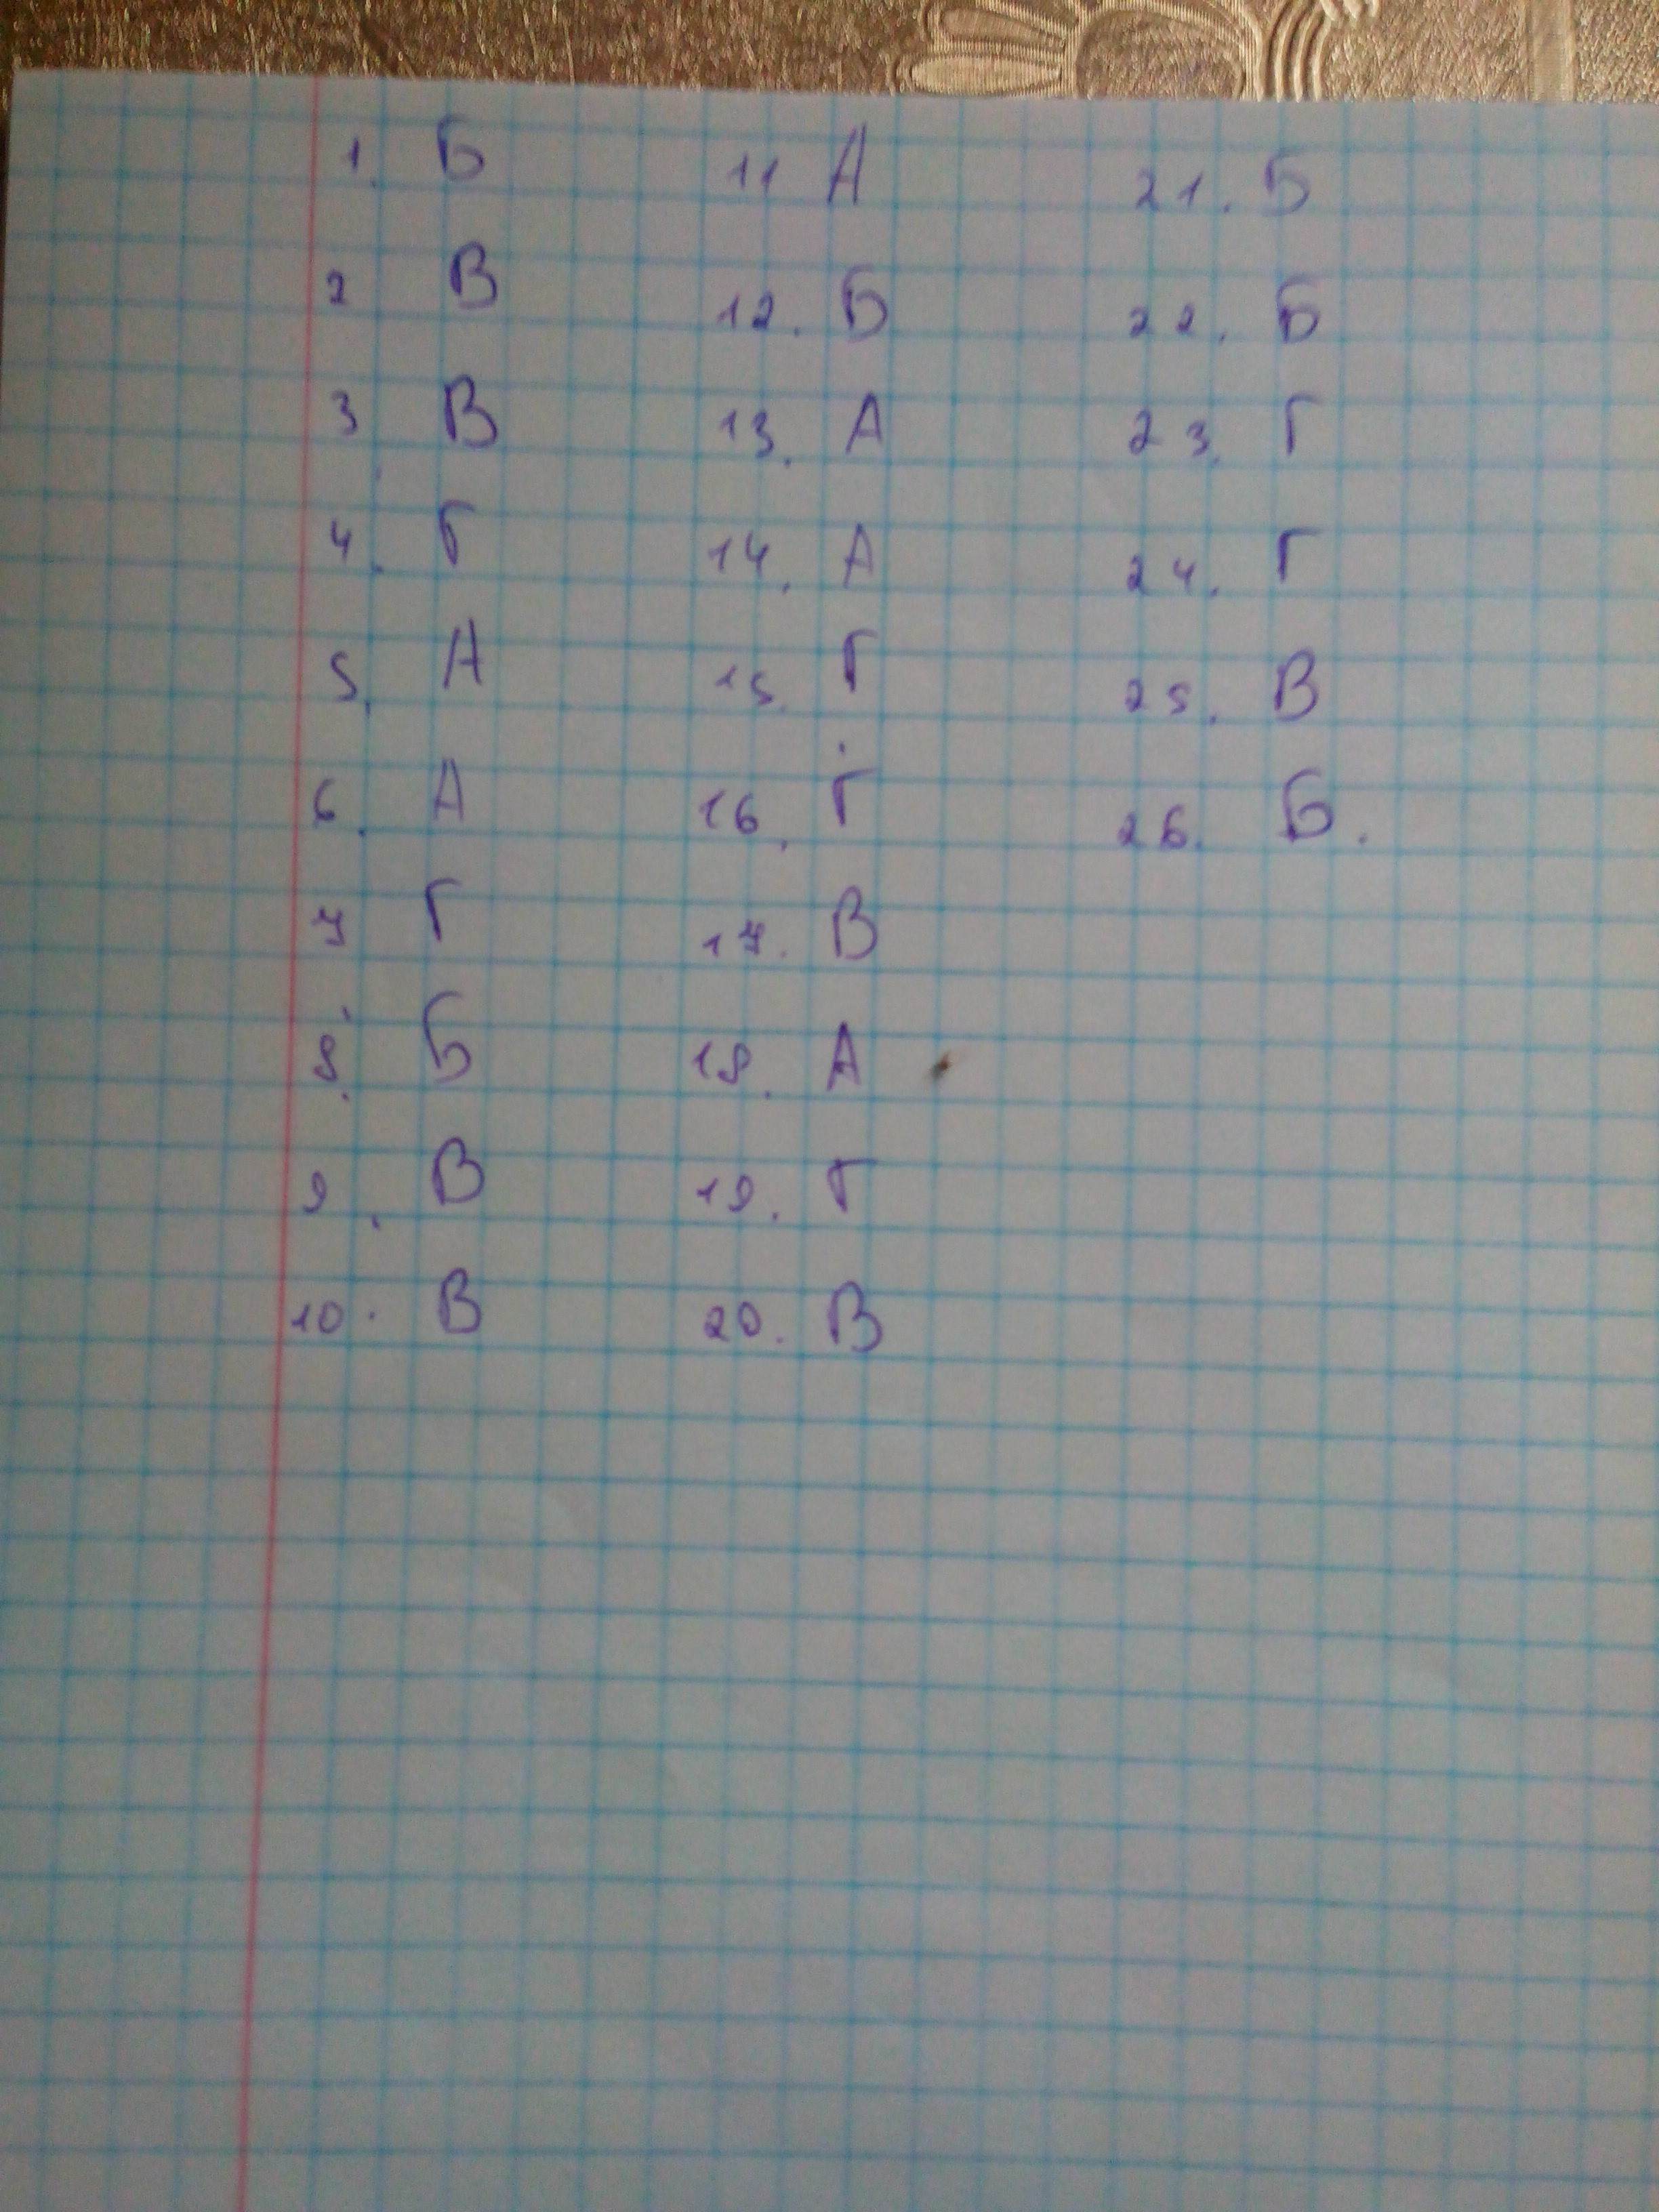 1. Б
2 В
3. В
4. Г
5. А
6. А
7 Г
8. Б
9. В
10. В
11 А
12. Б
13. А
14. А
15. Г
16. Г
17. В
18. А
19. Г
20. В
21. Б
22. Б
23. Г
24. Г
25. В
26. Б.